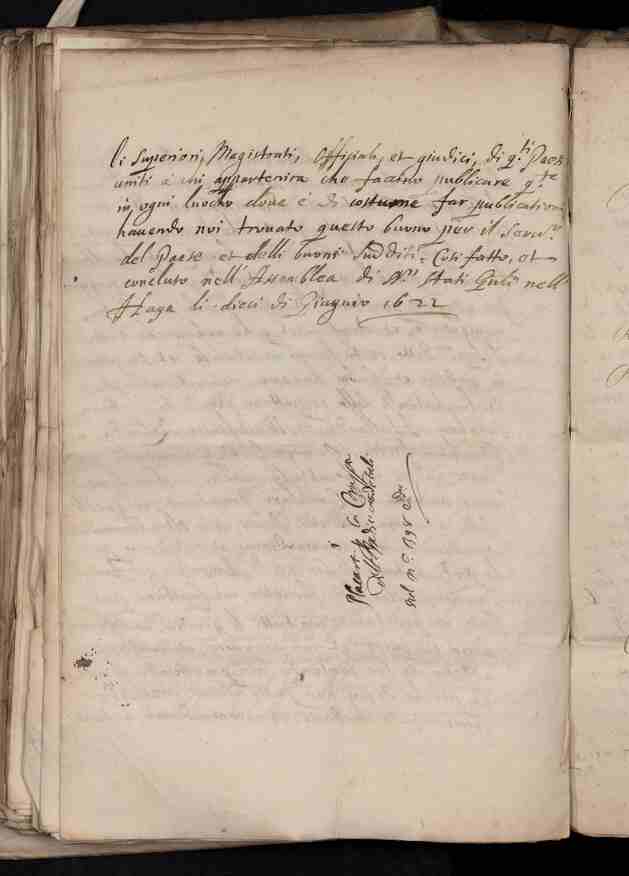 li Superiori, Magistrati, Offitiali, et giudici, di q.ti Paesi
uniti à chi appartenira che faccino publicare q.te
in ogni luocho dove è di costume far publicationi
havendo noi trovato questo buono per il Serv.o
del Paese et delli buoni sudditi. Cosi fatto, et
concluso nell' Assemblea di N.ri Stati G.nli nell'
Haga li dieci di Giugnio 1622
Placart
nel n.o 198